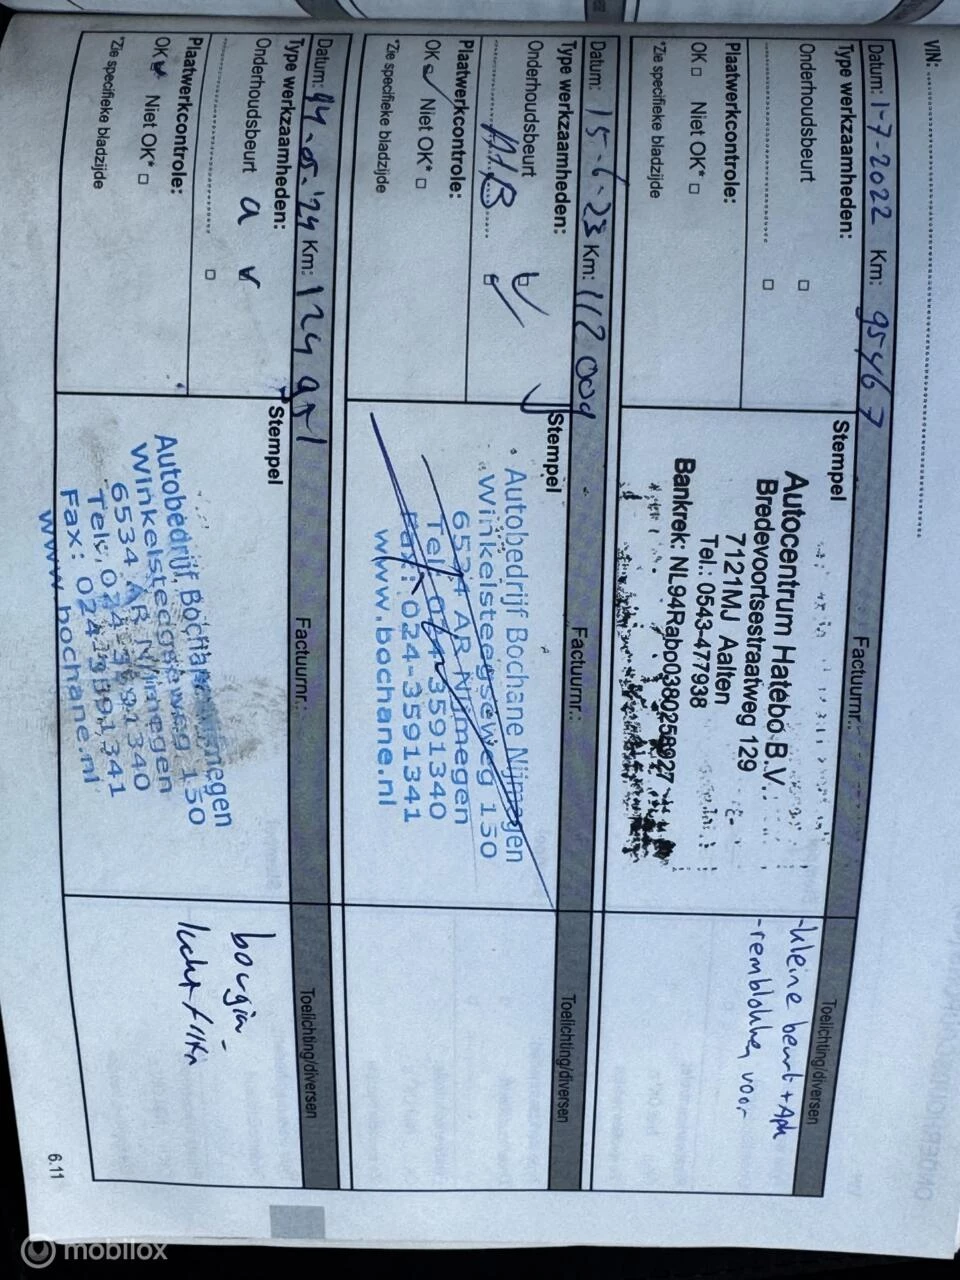 VIN:
Datum: 1-7-2022 Km: 95467 Factuurnr.: Toelichting/diversen
Type werkzaamheden:
Stempel
Onderhoudsbeurt
Plaatwerkcontrole:
OK Niet OK*
*Zie specifieke bladzijde
Autocentrum Hatebo B.V.
Bredevoortsestraatweg 129
7121MJ Aalten
Tel.: 0543-477938
Bankrek: NL94Rabo0380256927
-kleine beurt + Apk
-remblokken voor
Datum: 15-6-23 Km: 112 009 Factuurnr.: Toelichting/diversen
Type werkzaamheden:
Stempel
Onderhoudsbeurt
Plaatwerkcontrole:
OK Niet OK*
*Zie specifieke bladzijde
Autobedrijf Bochane Nijmegen
Winkelsteegseweg 150
6534 AR Nijmegen
Tel. 024-3591340
Fax: 024-3591341
www.bochane.nl
Datum: 14-05-'24 Km: 124 951 Factuurnr.: Toelichting/diversen
Type werkzaamheden:
Stempel
Onderhoudsbeurt a
Plaatwerkcontrole:
OK Niet OK*
*Zie specifieke bladzijde
Autobedrijf Bochane Nijmegen
Winkelsteegseweg 150
6534 AR Nijmegen
Tel. 024-3591340
Fax: 024-3591341
www.bochane.nl
bougie-
lucht filter
6.11
mobilox